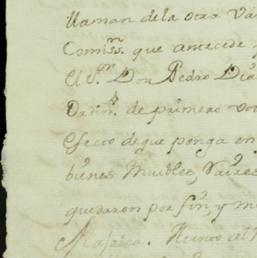 llaman de la otra Van
Comiss.n que antecede
El S.or Don Pedro Dia
Ordin.o de primero vot
efecto de que ponga en
bienes Muebles, Raizes
quedaron por fin, y mu